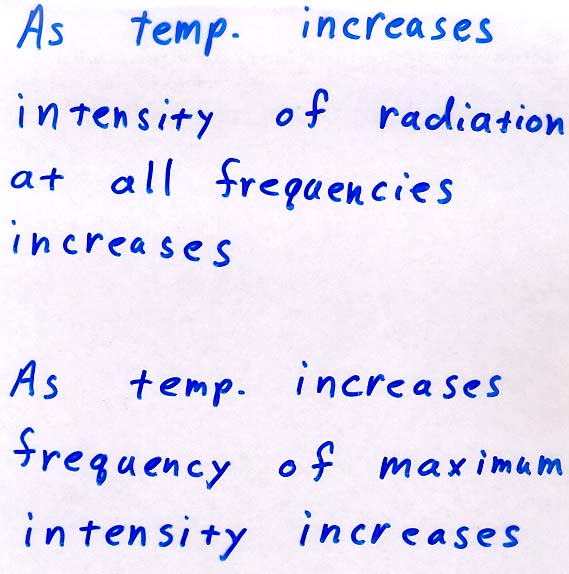 As temp. increases
intensity of radiation
at all frequencies
increases
As temp. increases
frequency of maximum
intensity increases